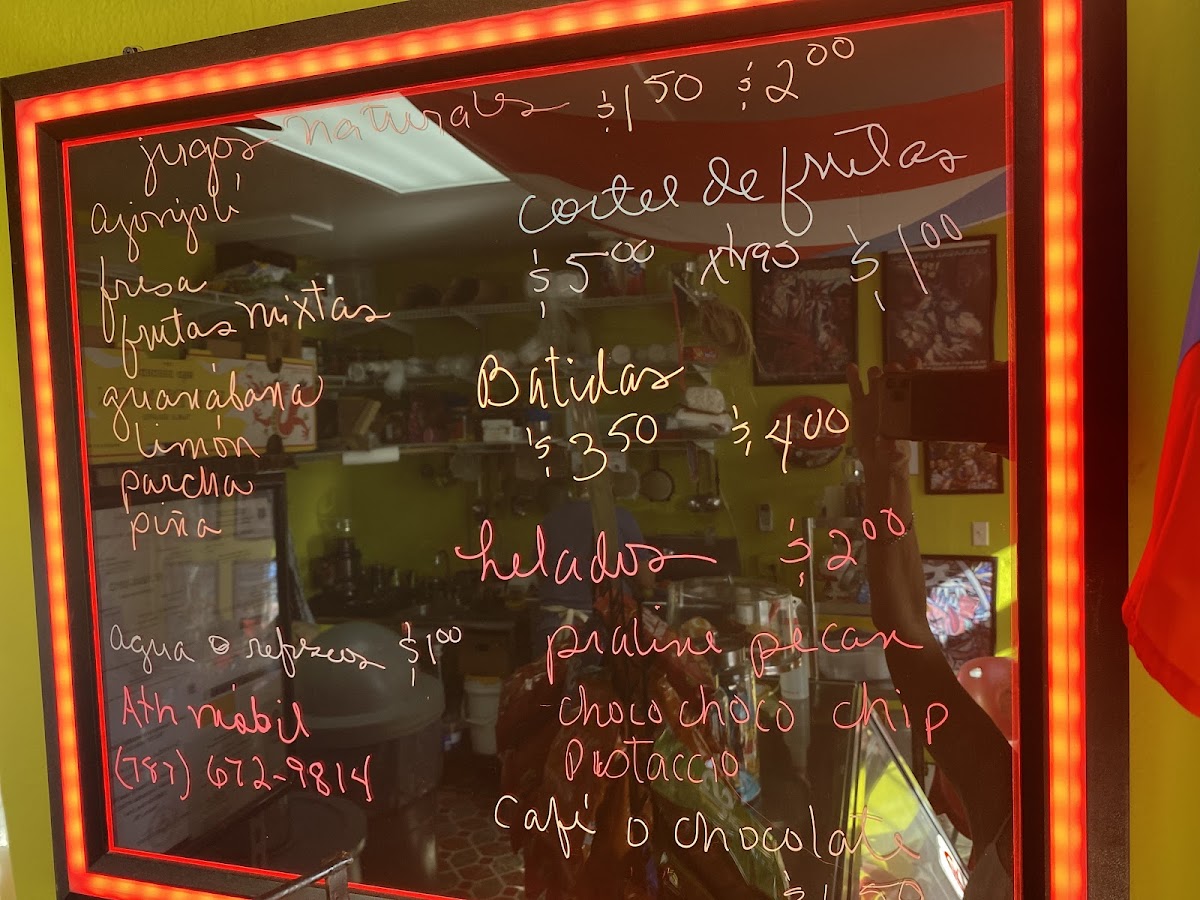 jugos naturales $1 50 $2 00
ajonjolí
fresa
frutas mixtas
guanábana
limón
parcha
piña
agua o refrescos $1 00
Ath móvil
(787) 672-9814
coctel de frutas
$5 00 xtras $1 00
Batidas
$3 50 $4 00
helados $2 00
praline pecan
choco choco chip
Pistaccio
Café o chocolate
$1 50